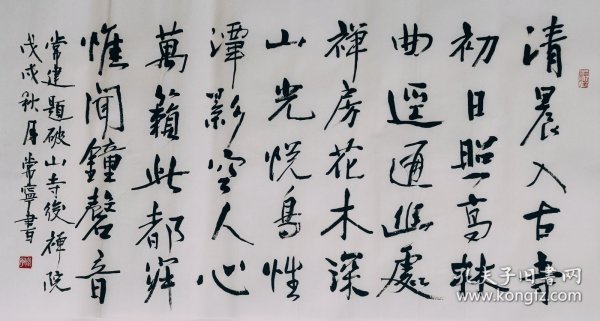 清晨入古寺
初日照高林
曲逕通幽處
禅房花木深
山光悦鳥性
潭影空人心
萬籟此都寂
惟聞鐘磬音
常建題破山寺後禅院
戊戌秋月常寧書
孔夫子旧书网
www.kongfz.com